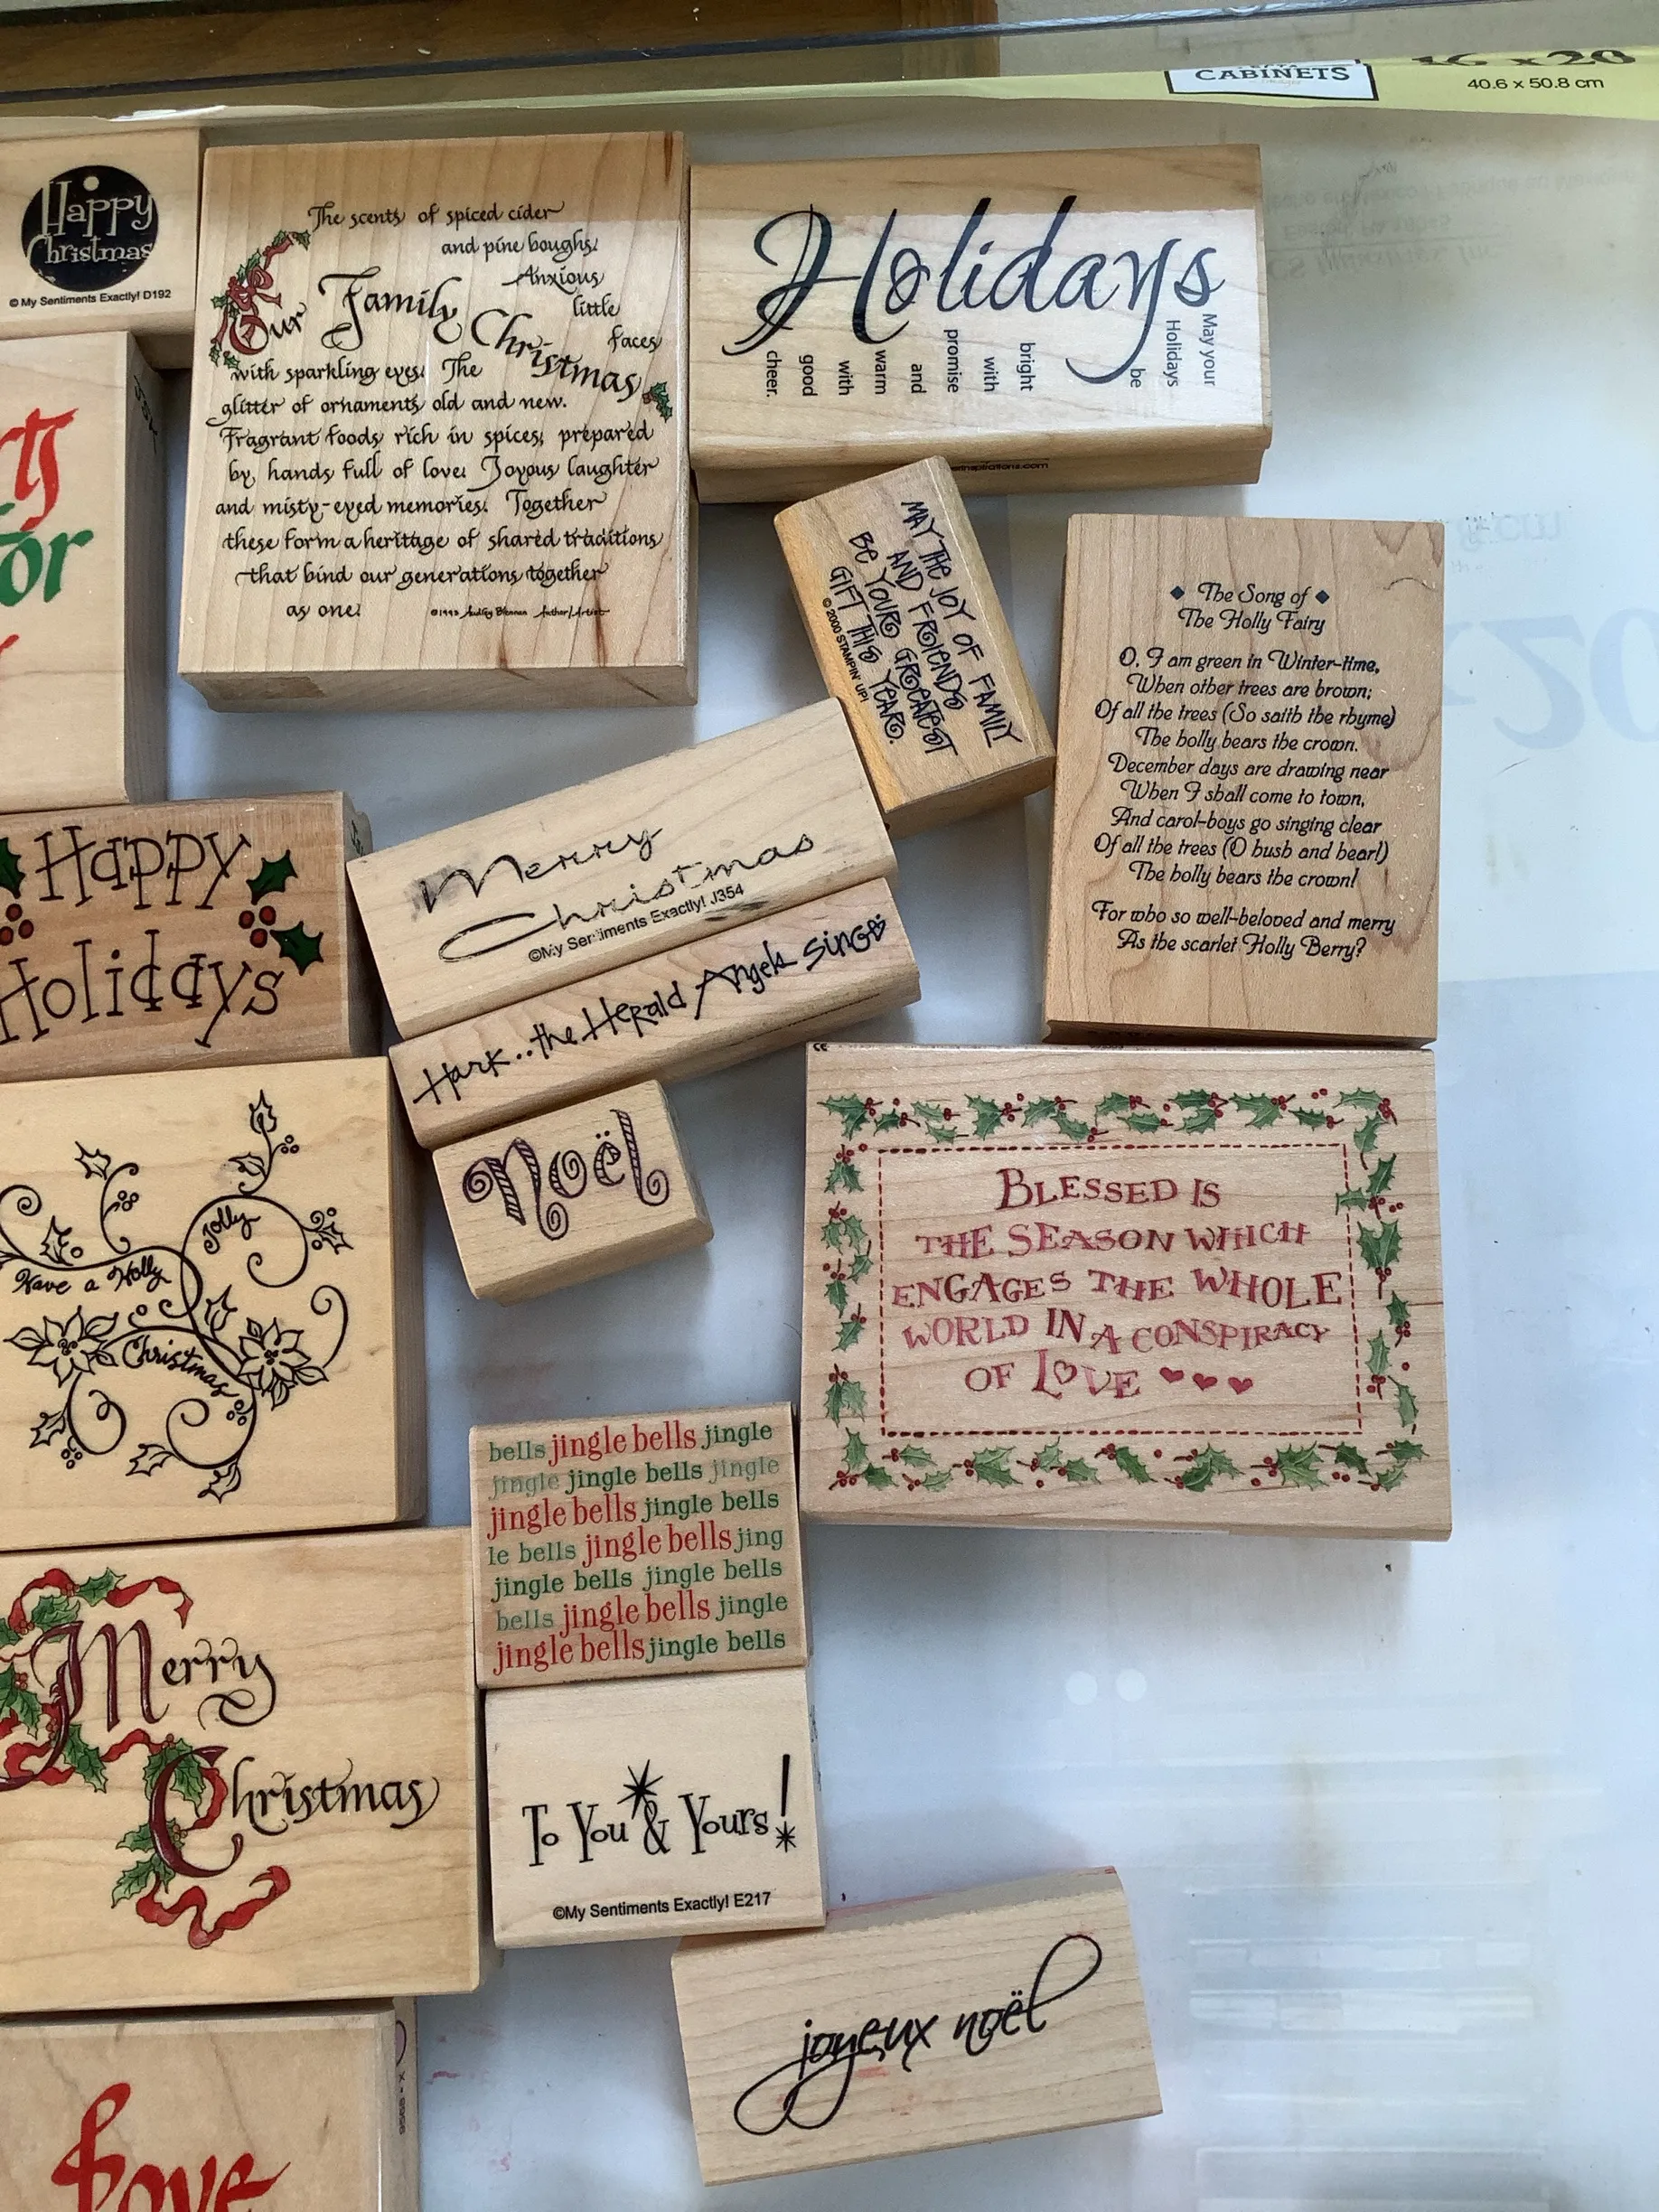 CABINETS
16 x 20
40.6 x 50.8 cm
Happy
Christmas
© My Sentiments Exactly! D192
The scents of spiced cider
and pine boughs.
Anxious
little
faces
Our Family Christmas
with sparkling eyes. The
glitter of ornaments old and new.
Fragrant foods rich in spices, prepared
by hands full of love. Joyous laughter
and misty-eyed memories. Together
these form a heritage of shared traditions
that bind our generations together
as one.
Author/Artist
Holidays
May your
Holidays
be
bright
with
promise
and
warm
with
good
cheer.
MAY THE JOY OF FAMILY
AND FRIENDS
BE YOUR GREATEST
GIFT THIS YEAR.
© 2000 STAMPIN' UP!
The Song of
The Holly Fairy
O, I am green in Winter-time,
When other trees are brown;
Of all the trees (So saith the rhyme)
The holly bears the crown.
December days are drawing near
When I shall come to town,
And carol-boys go singing clear
Of all the trees (O hush and hear!)
The holly bears the crown!
For who so well-beloved and merry
As the scarlet Holly Berry?
or
Merry
Christmas
©My Sentiments Exactly! J354
Happy
Holidays
Hark..the Herald Angels Sing
Noël
Have a Holly
Jolly
Christmas
BLESSED IS
THE SEASON WHICH
ENGAGES THE WHOLE
WORLD IN A CONSPIRACY
OF LOVE
bells jingle bells jingle
jingle jingle bells jingle
jingle bells jingle bells
le bells jingle bells jing
jingle bells jingle bells
bells jingle bells jingle
jingle bells jingle bells
Merry
Christmas
To You & Yours!
©My Sentiments Exactly! E217
joyeux noël